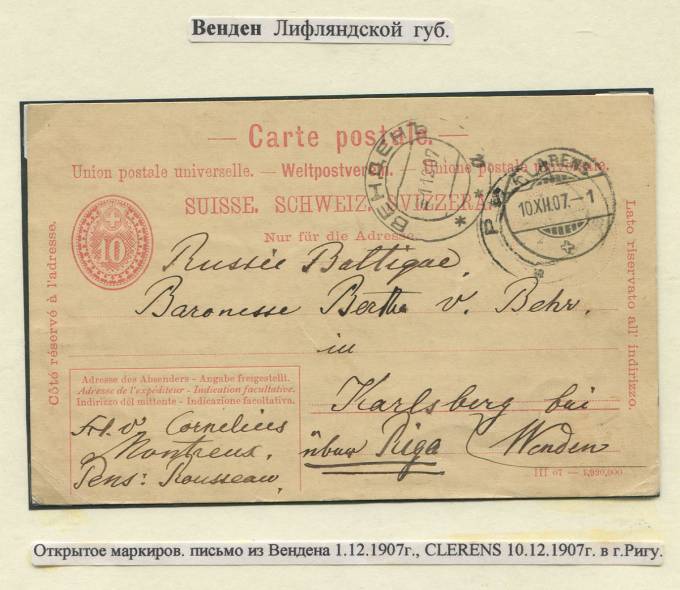 Венден Лифляндской губ.
— Carte postale. —
Union postale universelle. — Weltpostverein. — Unione postale universale.
SUISSE. SCHWEIZ. SVIZZERA.
Nur für die Adresse.
10
ВЕНДЕНЪ
CLARENS
10.XII.07.—1
Côté réservé à l'adresse.
Lato riservato all' indirizzo.
Russie Baltique
Baronesse Bertha v. Behr.
in
Karlsberg bei
Wenden
über Riga
Adresse des Absenders - Angabe freigestellt.
Adresse de l'expéditeur - Indication facultative.
Indirizzo del mittente - Indicazione facoltativa.
Frl. v. Cornelius
Montreux.
Pens: Rousseau
III 07 — 1,920,000
Открытое маркиров. письмо из Вендена 1.12.1907г., CLERENS 10.12.1907г. в г.Ригу.